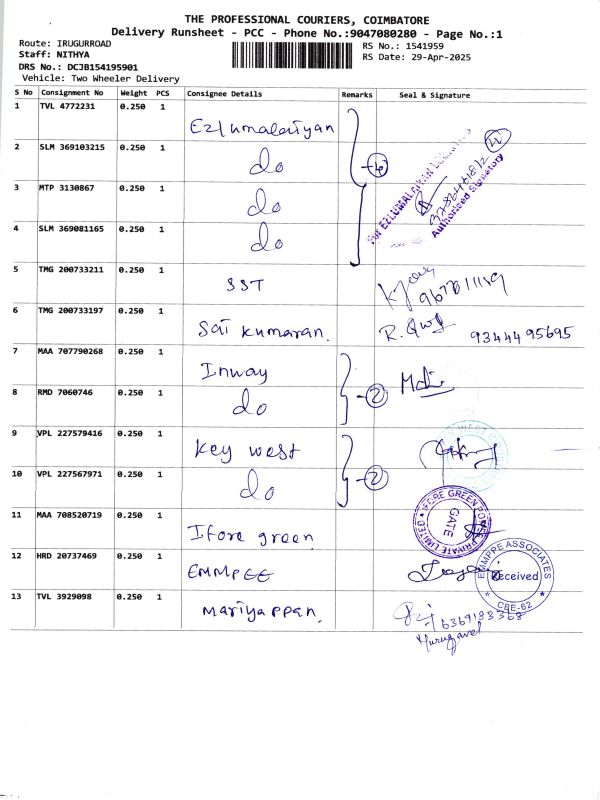 THE PROFESSIONAL COURIERS, COIMBATORE
Delivery Runsheet - PCC - Phone No.:9047080280 - Page No.:1
Route: IRUGURROAD
Staff: NITHYA
DRS No.: DCJB154195901
Vehicle: Two Wheeler Delivery
RS No.: 1541959
RS Date: 29-Apr-2025
S No Consignment No Weight PCS Consignee Details Remarks Seal & Signature
1 TVL 4772231 0.250 1 Ezlumalaiyan
2 SLM 369103215 0.250 1 do
3 MTP 3130867 0.250 1 do
4 SLM 369081165 0.250 1 do
4
For EZLUMALAIYAN
Authorised Signatory
5 TMG 200733211 0.250 1 SST
6 TMG 200733197 0.250 1 Sai Kumaran. R. 9344495695
7 MAA 707790268 0.250 1 Inway
8 RMD 7060746 0.250 1 do
2
9 VPL 227579416 0.250 1 Key west
10 VPL 227567971 0.250 1 do
2
11 MAA 708520719 0.250 1 Ifore green
IFORE GREEN POWER PRIVATE LIMITED
GATE
12 HRD 20737469 0.250 1 EMMPEE
EMMPPE ASSOCIATES
Received
CBE-62
13 TVL 3929098 0.250 1 Mariyappan. 6369133368
Murugavel